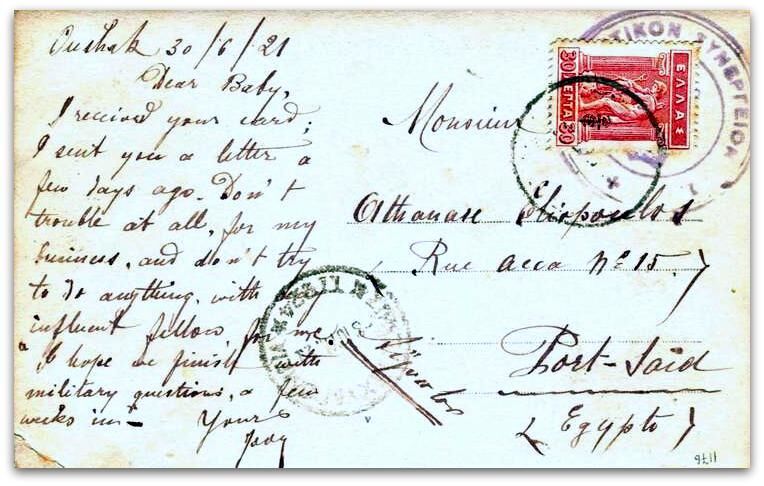 Oushak 30/6/21
Dear Baby,
I received your card;
I sent you a letter a
few days ago. Don't
trouble at all, for my
business, and don't try
to do anything, with any
influent fellow for me.
I hope we finish with
military questions, a few
weeks in
Your
Monsieur
Athanase Eliopoulos
Rue Acca Nº 15.
Port-Saïd
(Egypto)
ΕΛΛΑΣ
30 30
ΣΥΝΕΡΓΕΙΟΝ
1176